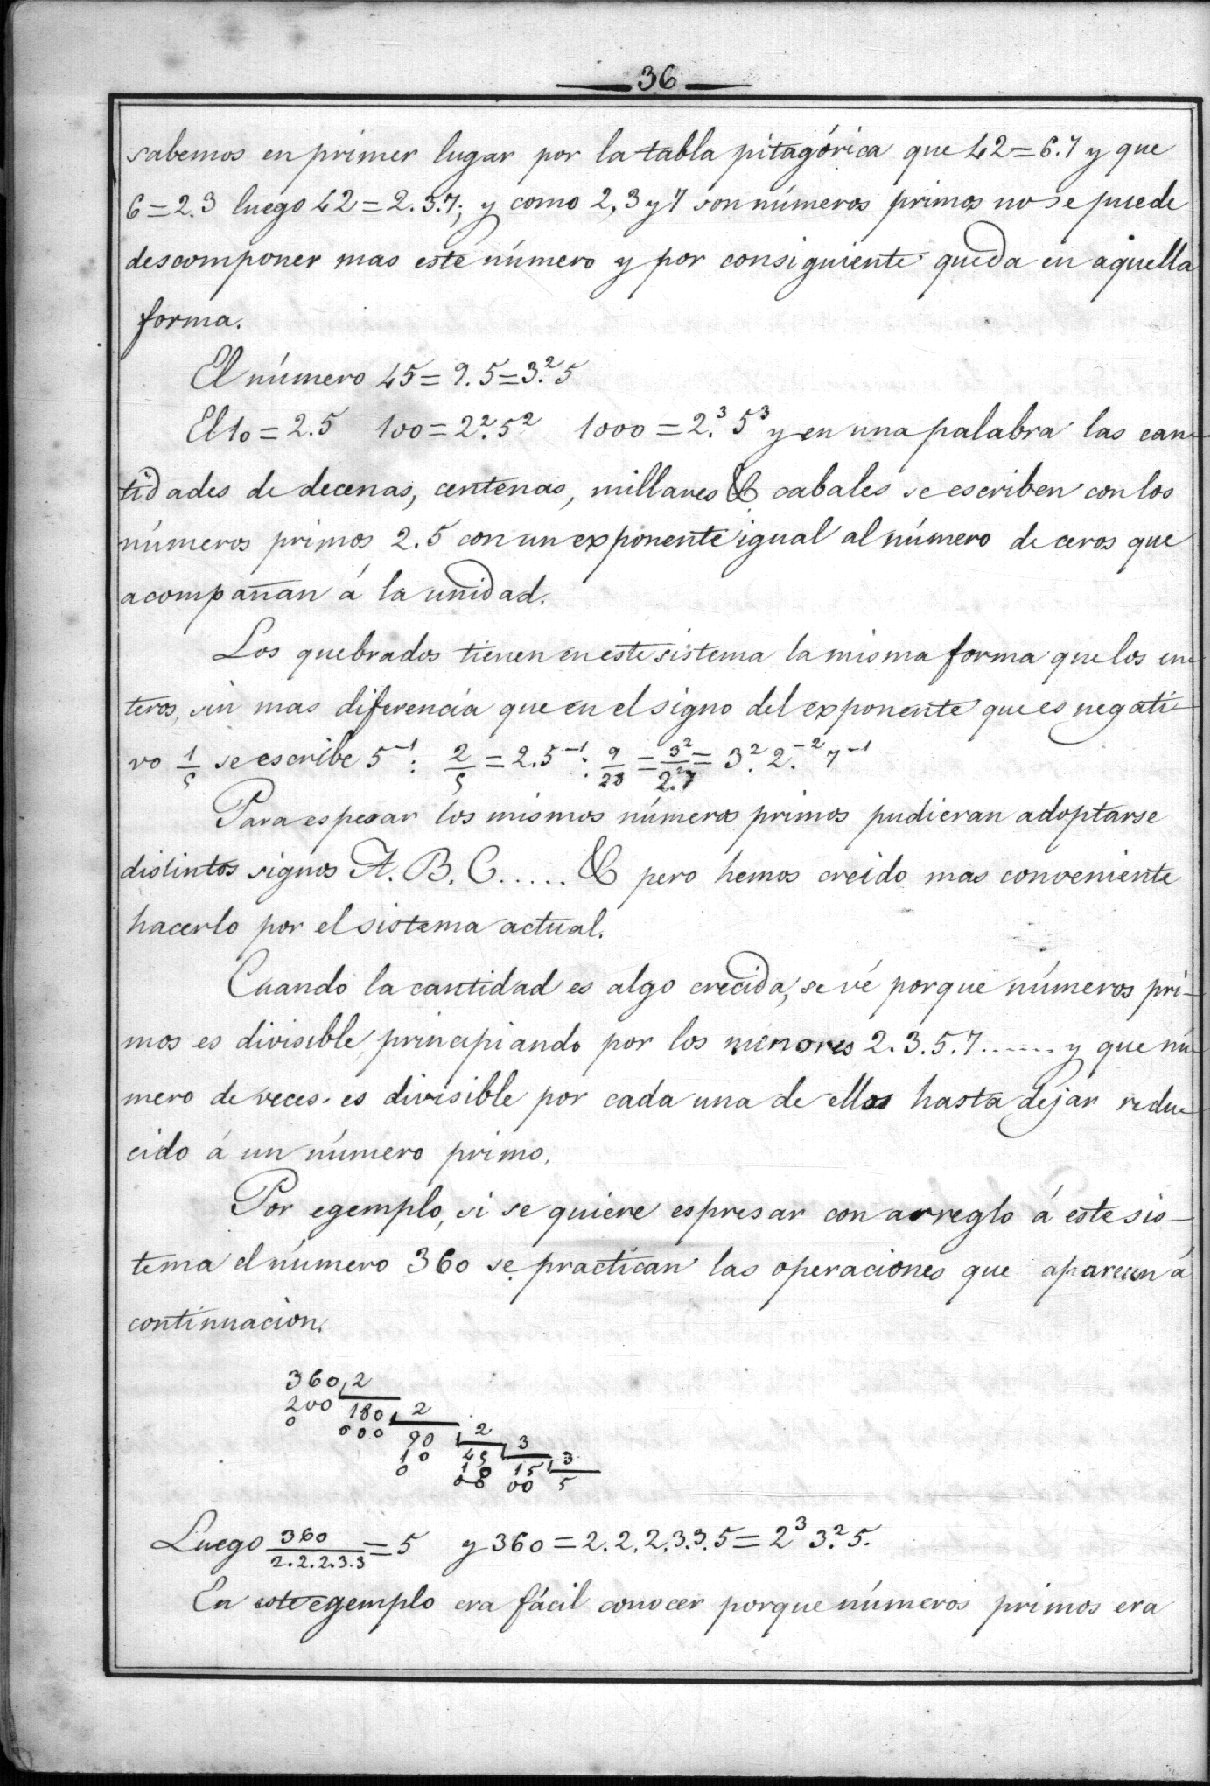 36
sabemos en primer lugar por la tabla pitagórica que 42=6.7 y que
6=2.3 luego 42=2.3.7; y como 2,3 y 7 son números primos no se puede
descomponer mas este número y por consiguiente queda en aquella
forma.
El número 45=9.5=3².5
El 10=2.5 100=2².5² 1000=2.³5³ y en una palabra las can-
tidades de decenas, centenas, millares &c cabales se escriben con los
números primos 2.5 con un exponente igual al número de ceros que
acompañan á la unidad.
Los quebrados tienen en este sistema la misma forma que los en-
teros, sin mas diferencia que en el signo del exponente que es negati-
vo 1/5 se escribe 5⁻¹: 2/5=2.5⁻¹: 9/28=3²/2².7=3.²2.⁻²7⁻¹
Para espesar los mismos números primos pudieran adoptarse
distintos signos A.B.C..... &c pero hemos creido mas conveniente
hacerlo por el sistema actual.
Cuando la cantidad es algo crecida, se vé porque números pri-
mos es divisible principiando por los menores 2.3.5.7....... y que nú-
mero de veces es divisible por cada una de ellas hasta dejar redu-
cido á un número primo.
Por egemplo, si se quiere espresar con arreglo á este sis-
tema el número 360 se practican las operaciones que aparecen á
continuacion.
360 2
200 180 2
0 000 90 2 3
10 45 15 3
0 18 00 5
00
Luego 360/2.2.2.3.3=5 y 360=2.2.2.3.3.5=2³3.²5.
En este egemplo era fácil conocer porque números primos era